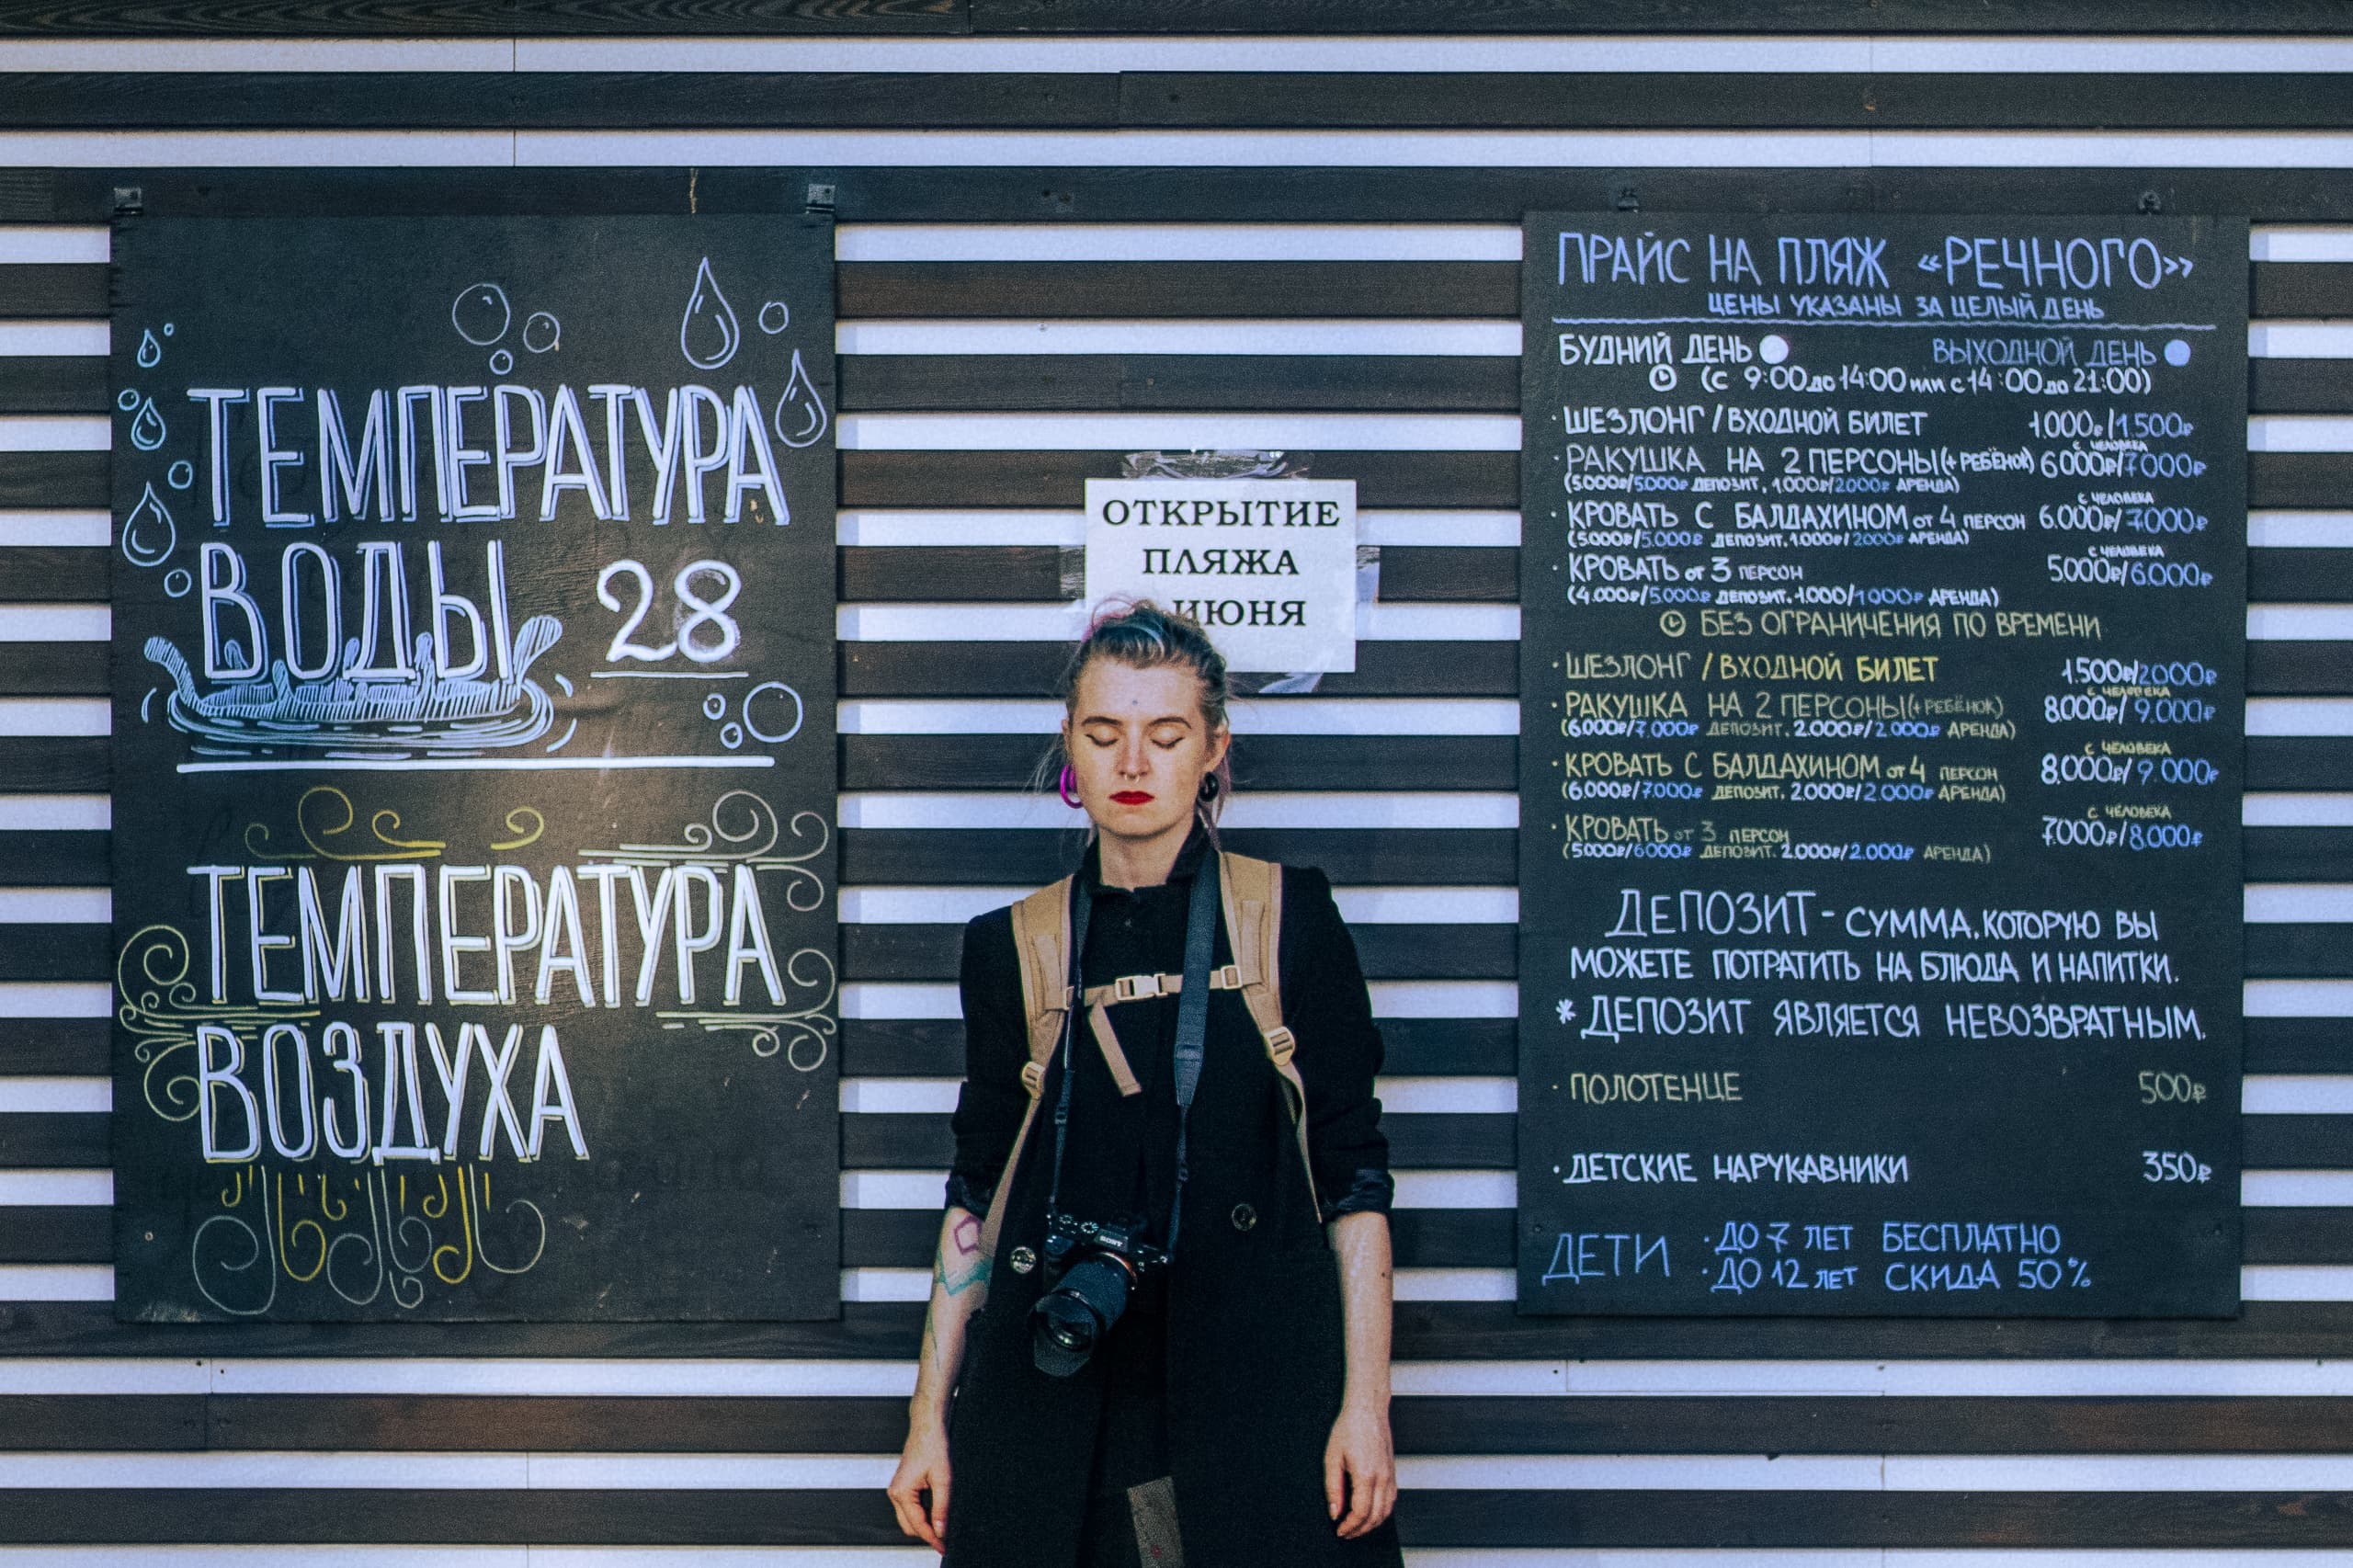 ТЕМПЕРАТУРА
ВОДЫ 28
ТЕМПЕРАТУРА
ВОЗДУХА
ОТКРЫТИЕ
ПЛЯЖА
ИЮНЯ
SONY
ПРАЙС НА ПЛЯЖ «РЕЧНОГО»
ЦЕНЫ УКАЗАНЫ ЗА ЦЕЛЫЙ ДЕНЬ
БУДНИЙ ДЕНЬ ВЫХОДНОЙ ДЕНЬ
(С 9:00 до 14:00 или с 14:00 до 21:00)
· ШЕЗЛОНГ / ВХОДНОЙ БИЛЕТ 1.000₽/1.500₽
С ЧЕЛОВЕКА
· РАКУШКА НА 2 ПЕРСОНЫ (+ РЕБЁНОК) 6000₽/7000₽
(5.000₽/5.000₽ ДЕПОЗИТ, 1.000₽/2000₽ АРЕНДА)
С ЧЕЛОВЕКА
· КРОВАТЬ С БАЛДАХИНОМ от 4 ПЕРСОН 6.000₽/7000₽
(5000₽/5.000₽ ДЕПОЗИТ. 1.000₽/2000₽ АРЕНДА)
С ЧЕЛОВЕКА
· КРОВАТЬ от 3 ПЕРСОН 5000₽/6.000₽
(4.000₽/5.000₽ ДЕПОЗИТ. 1.000/1000₽ АРЕНДА)
БЕЗ ОГРАНИЧЕНИЯ ПО ВРЕМЕНИ
· ШЕЗЛОНГ / ВХОДНОЙ БИЛЕТ 1.500₽/2000₽
С ЧЕЛОВЕКА
· РАКУШКА НА 2 ПЕРСОНЫ (+ РЕБЁНОК) 8.000₽/9.000₽
(6.000₽/7.000₽ ДЕПОЗИТ. 2.000₽/2.000₽ АРЕНДА)
С ЧЕЛОВЕКА
· КРОВАТЬ С БАЛДАХИНОМ от 4 ПЕРСОН 8.000₽/9.000₽
(6.000₽/7.000₽ ДЕПОЗИТ. 2.000₽/2.000₽ АРЕНДА)
С ЧЕЛОВЕКА
· КРОВАТЬ от 3 ПЕРСОН 7.000₽/8.000₽
(5000₽/6000₽ ДЕПОЗИТ. 2.000₽/2.000₽ АРЕНДА)
ДЕПОЗИТ - СУММА, КОТОРУЮ ВЫ
МОЖЕТЕ ПОТРАТИТЬ НА БЛЮДА И НАПИТКИ.
* ДЕПОЗИТ ЯВЛЯЕТСЯ НЕВОЗВРАТНЫМ.
· ПОЛОТЕНЦЕ 500₽
· ДЕТСКИЕ НАРУКАВНИКИ 350₽
ДЕТИ · ДО 7 ЛЕТ БЕСПЛАТНО
· ДО 12 ЛЕТ СКИДА 50%